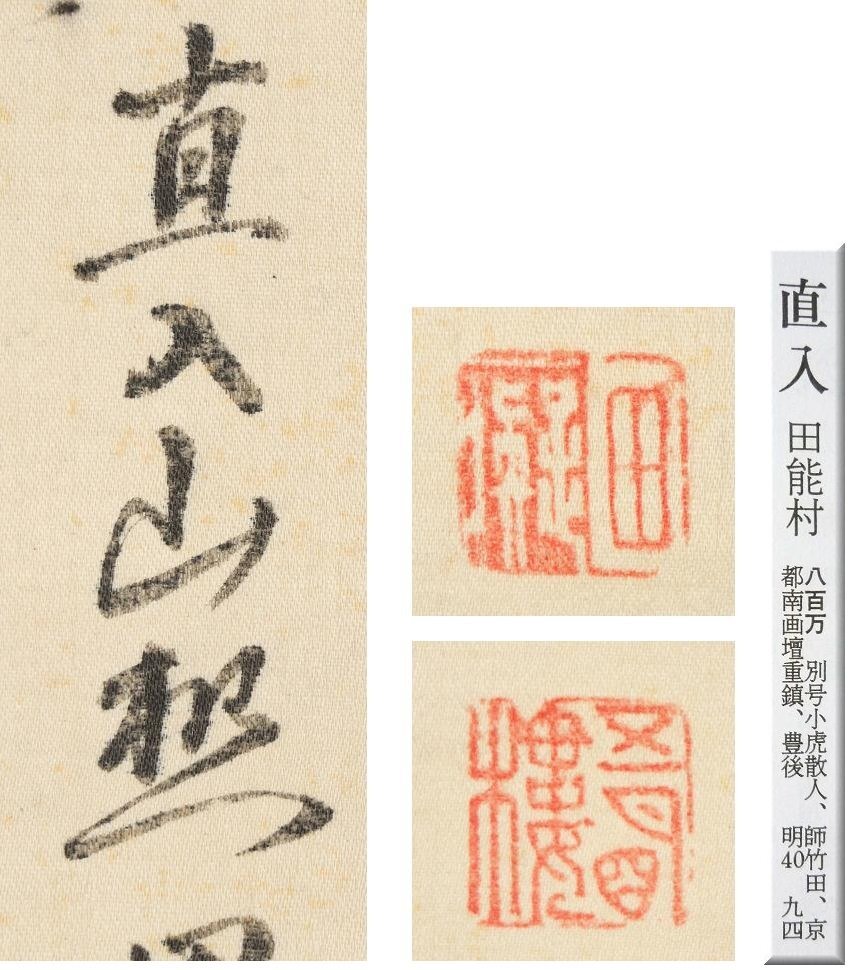 直入山樵
直入 田能村
八百万 別号小虎散人、師竹田、京
都南画壇重鎮、豊後 明40 九四